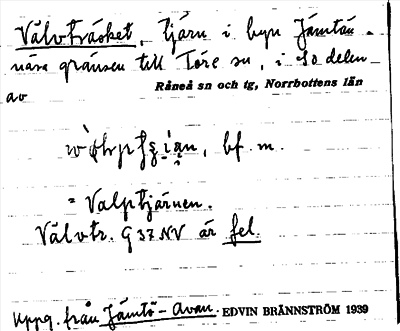 Välvträsket, tjärn i byn Jämtön
nära gränsen till Töre sn, i so delen
av
Råneå sn och tg, Norrbottens län
bf. m.
= Valptjärnen.
Välvtr. G 37 NV är fel.
Uppg. från Jämtö-Avan. EDVIN BRÄNNSTRÖM 1939